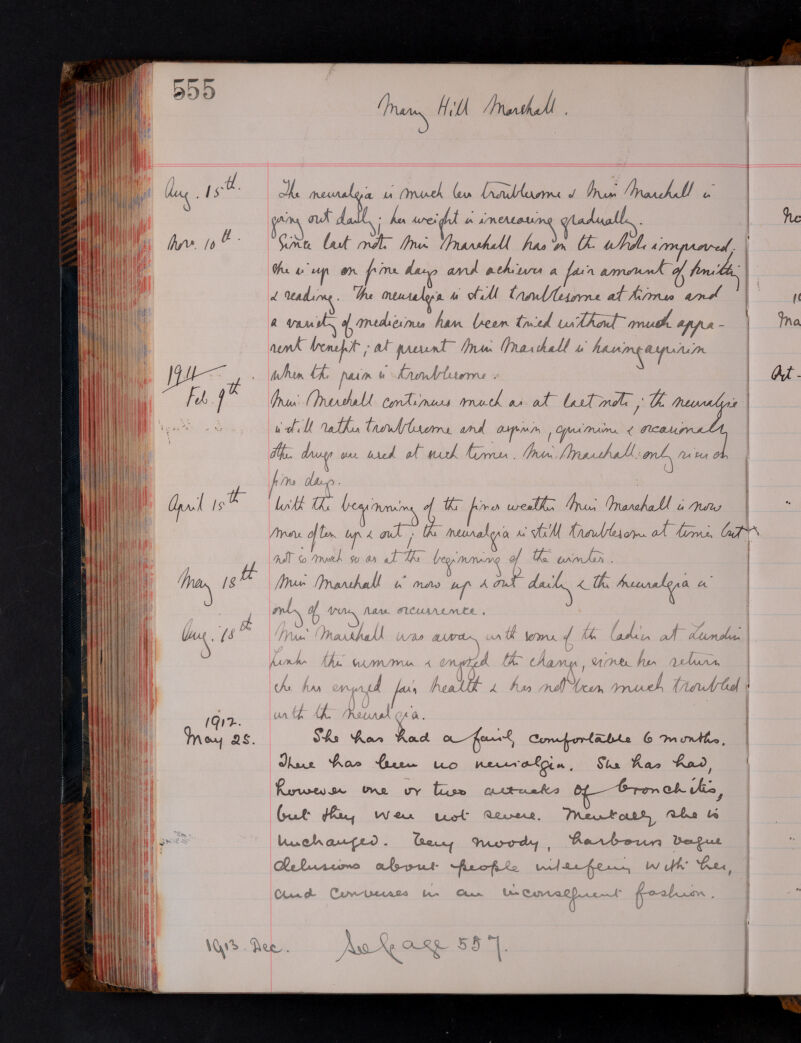 555
Mary Hill Marshall.
Aug. 15th. The neuralgia is much less troublesome & Miss Marshall is
going out daily; her weight is increasing gradually.
Nov. 10th. Since last note Miss Marshall has on the whole improved;
she is up on fine days and achieves a fair amount of knitting
& reading. The neuralgia is still troublesome at times and
a variety of medicines have been tried without much appa-
rent benefit; at present Miss Marshall is having aspirin
when the pain is troublesome.
1911
Feb. 9th Miss Marshall continues much as at last note; the neuralgia
is still rather troublesome and aspirin, quinine & occasionally
other drugs are used at such times. Miss Marshall only rises on
fine days.
April 15th With the beginning of the finer weather Miss Marshall is now
more often up & out; the neuralgia is still troublesome at times but
not so much so as at the beginning of the winter.
May 18th Miss Marshall is now up & out daily & the neuralgia is
only of very rare occurrence.
Aug. 18th Miss Marshall was away with some of the ladies at Lundin
Links this summer & enjoyed the change, since her return
she has enjoyed fair health & has not been much troubled
with the neuralgia.
1912.
May 25. She has had a fairly comfortable 6 months.
There has been no neuralgia. She has had,
however one or two attacks of bronchitis,
but they were not severe. Mentally she is
unchanged. Very moody, harbours vague
delusions about people interfering with her,
and converses in an inconsequent fashion.
1913. Dec. See page 557.